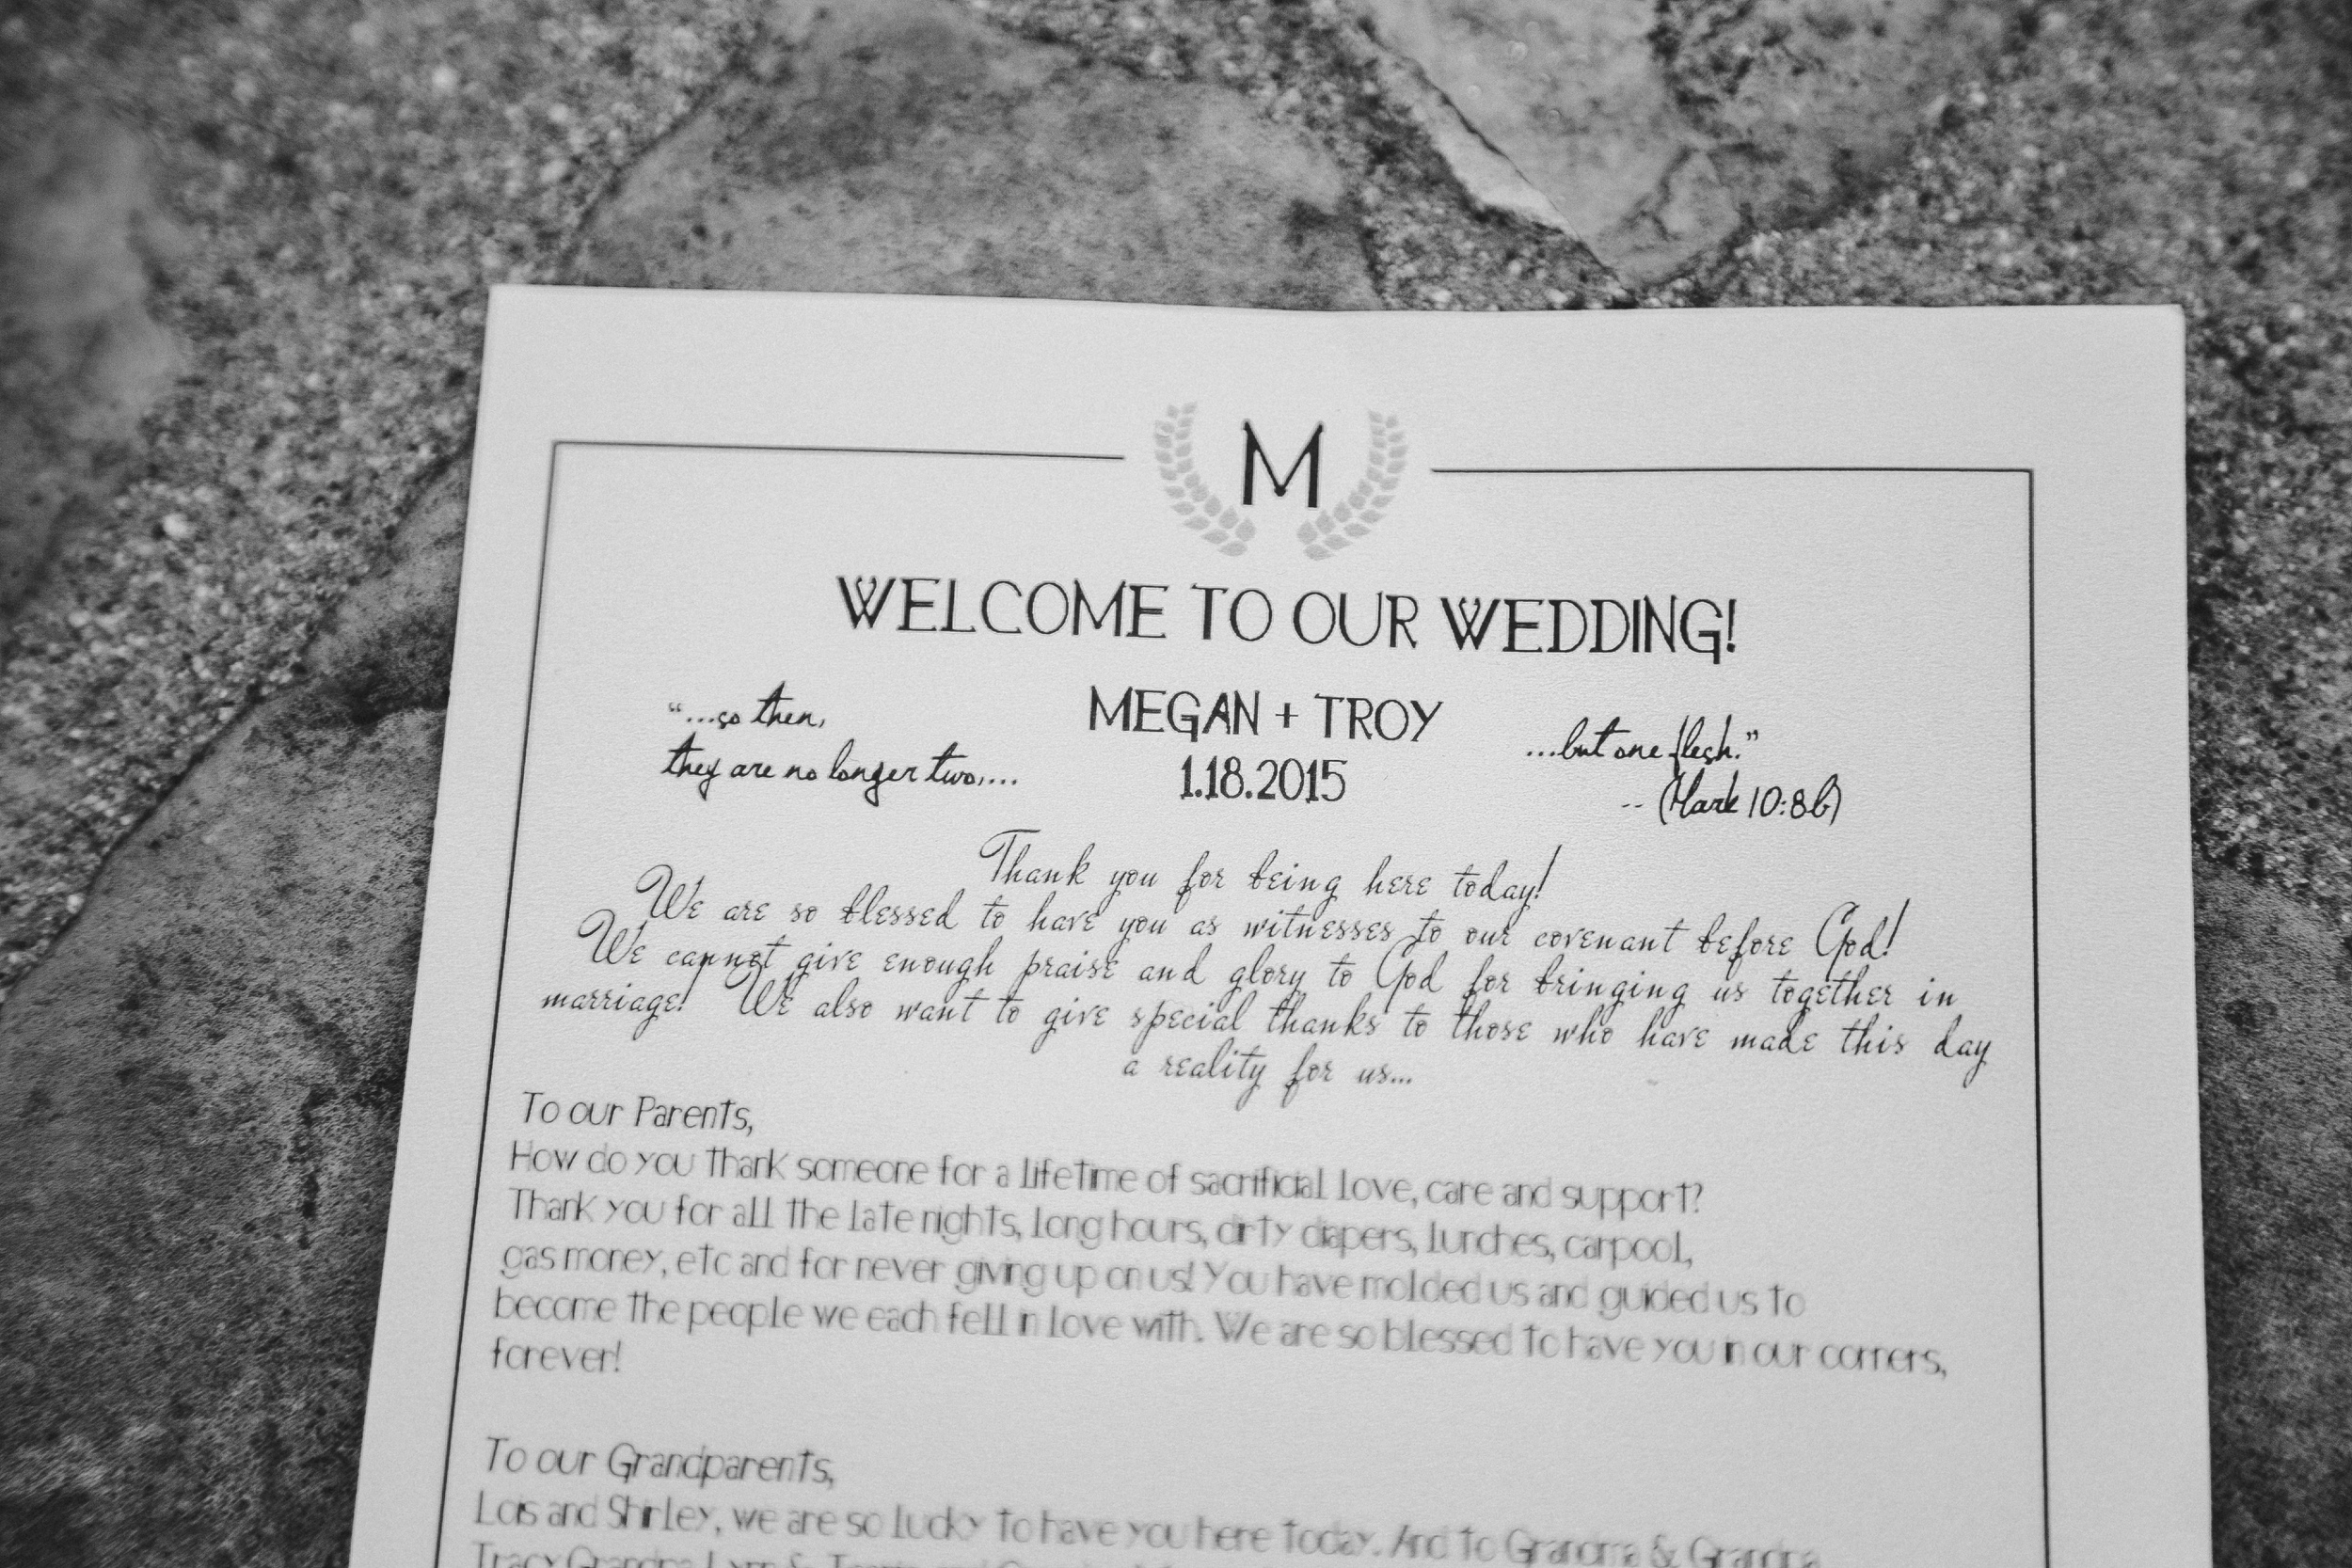 M
WELCOME TO OUR WEDDING!
MEGAN + TROY
1.18.2015
"...so then,
they are no longer two,...
...but one flesh."
-- (Mark 10:8b)
Thank you for being here today!
We are so blessed to have you as witnesses to our covenant before God!
We cannot give enough praise and glory to God for bringing us together in
marriage! We also want to give special thanks to those who have made this day
a reality for us...
To our Parents,
How do you thank someone for a lifetime of sacrificial love, care and support?
Thank you for all the late nights, long hours, dirty diapers, lunches, carpool,
gas money, etc and for never giving up on us! You have molded us and guided us to
become the people we each fell in love with. We are so blessed to have you in our corners,
forever!
To our Grandparents,
Lois and Shirley, we are so lucky to have you here today. And to Grandma & Grandpa
Tracy, Grandpa Lynn &